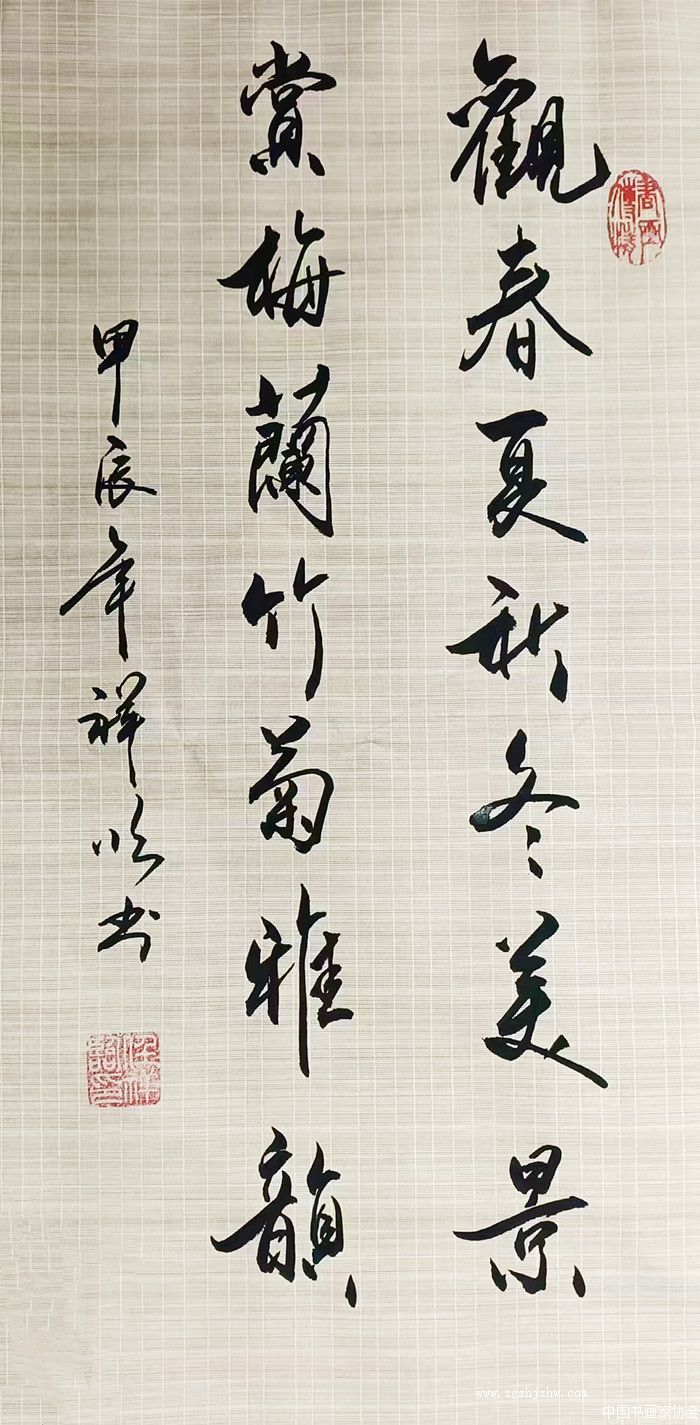 觀春夏秋冬美景
賞梅蘭竹菊雅韻
甲辰年祥 书
www.zgshjxhw.com
中国书画家协会